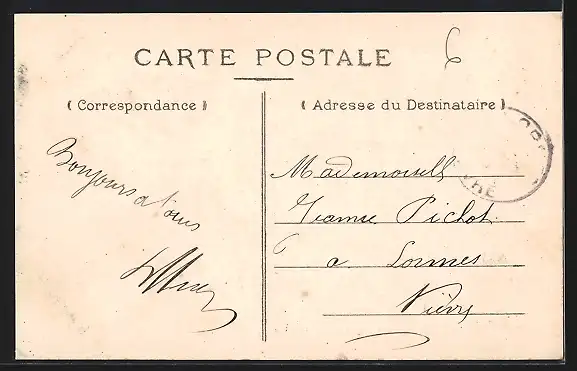 CARTE POSTALE
( Correspondance )
( Adresse du Destinataire )
Bonjours a tous
Mademoiselle
Jeanne Pichot
a Lormes
Nièvre